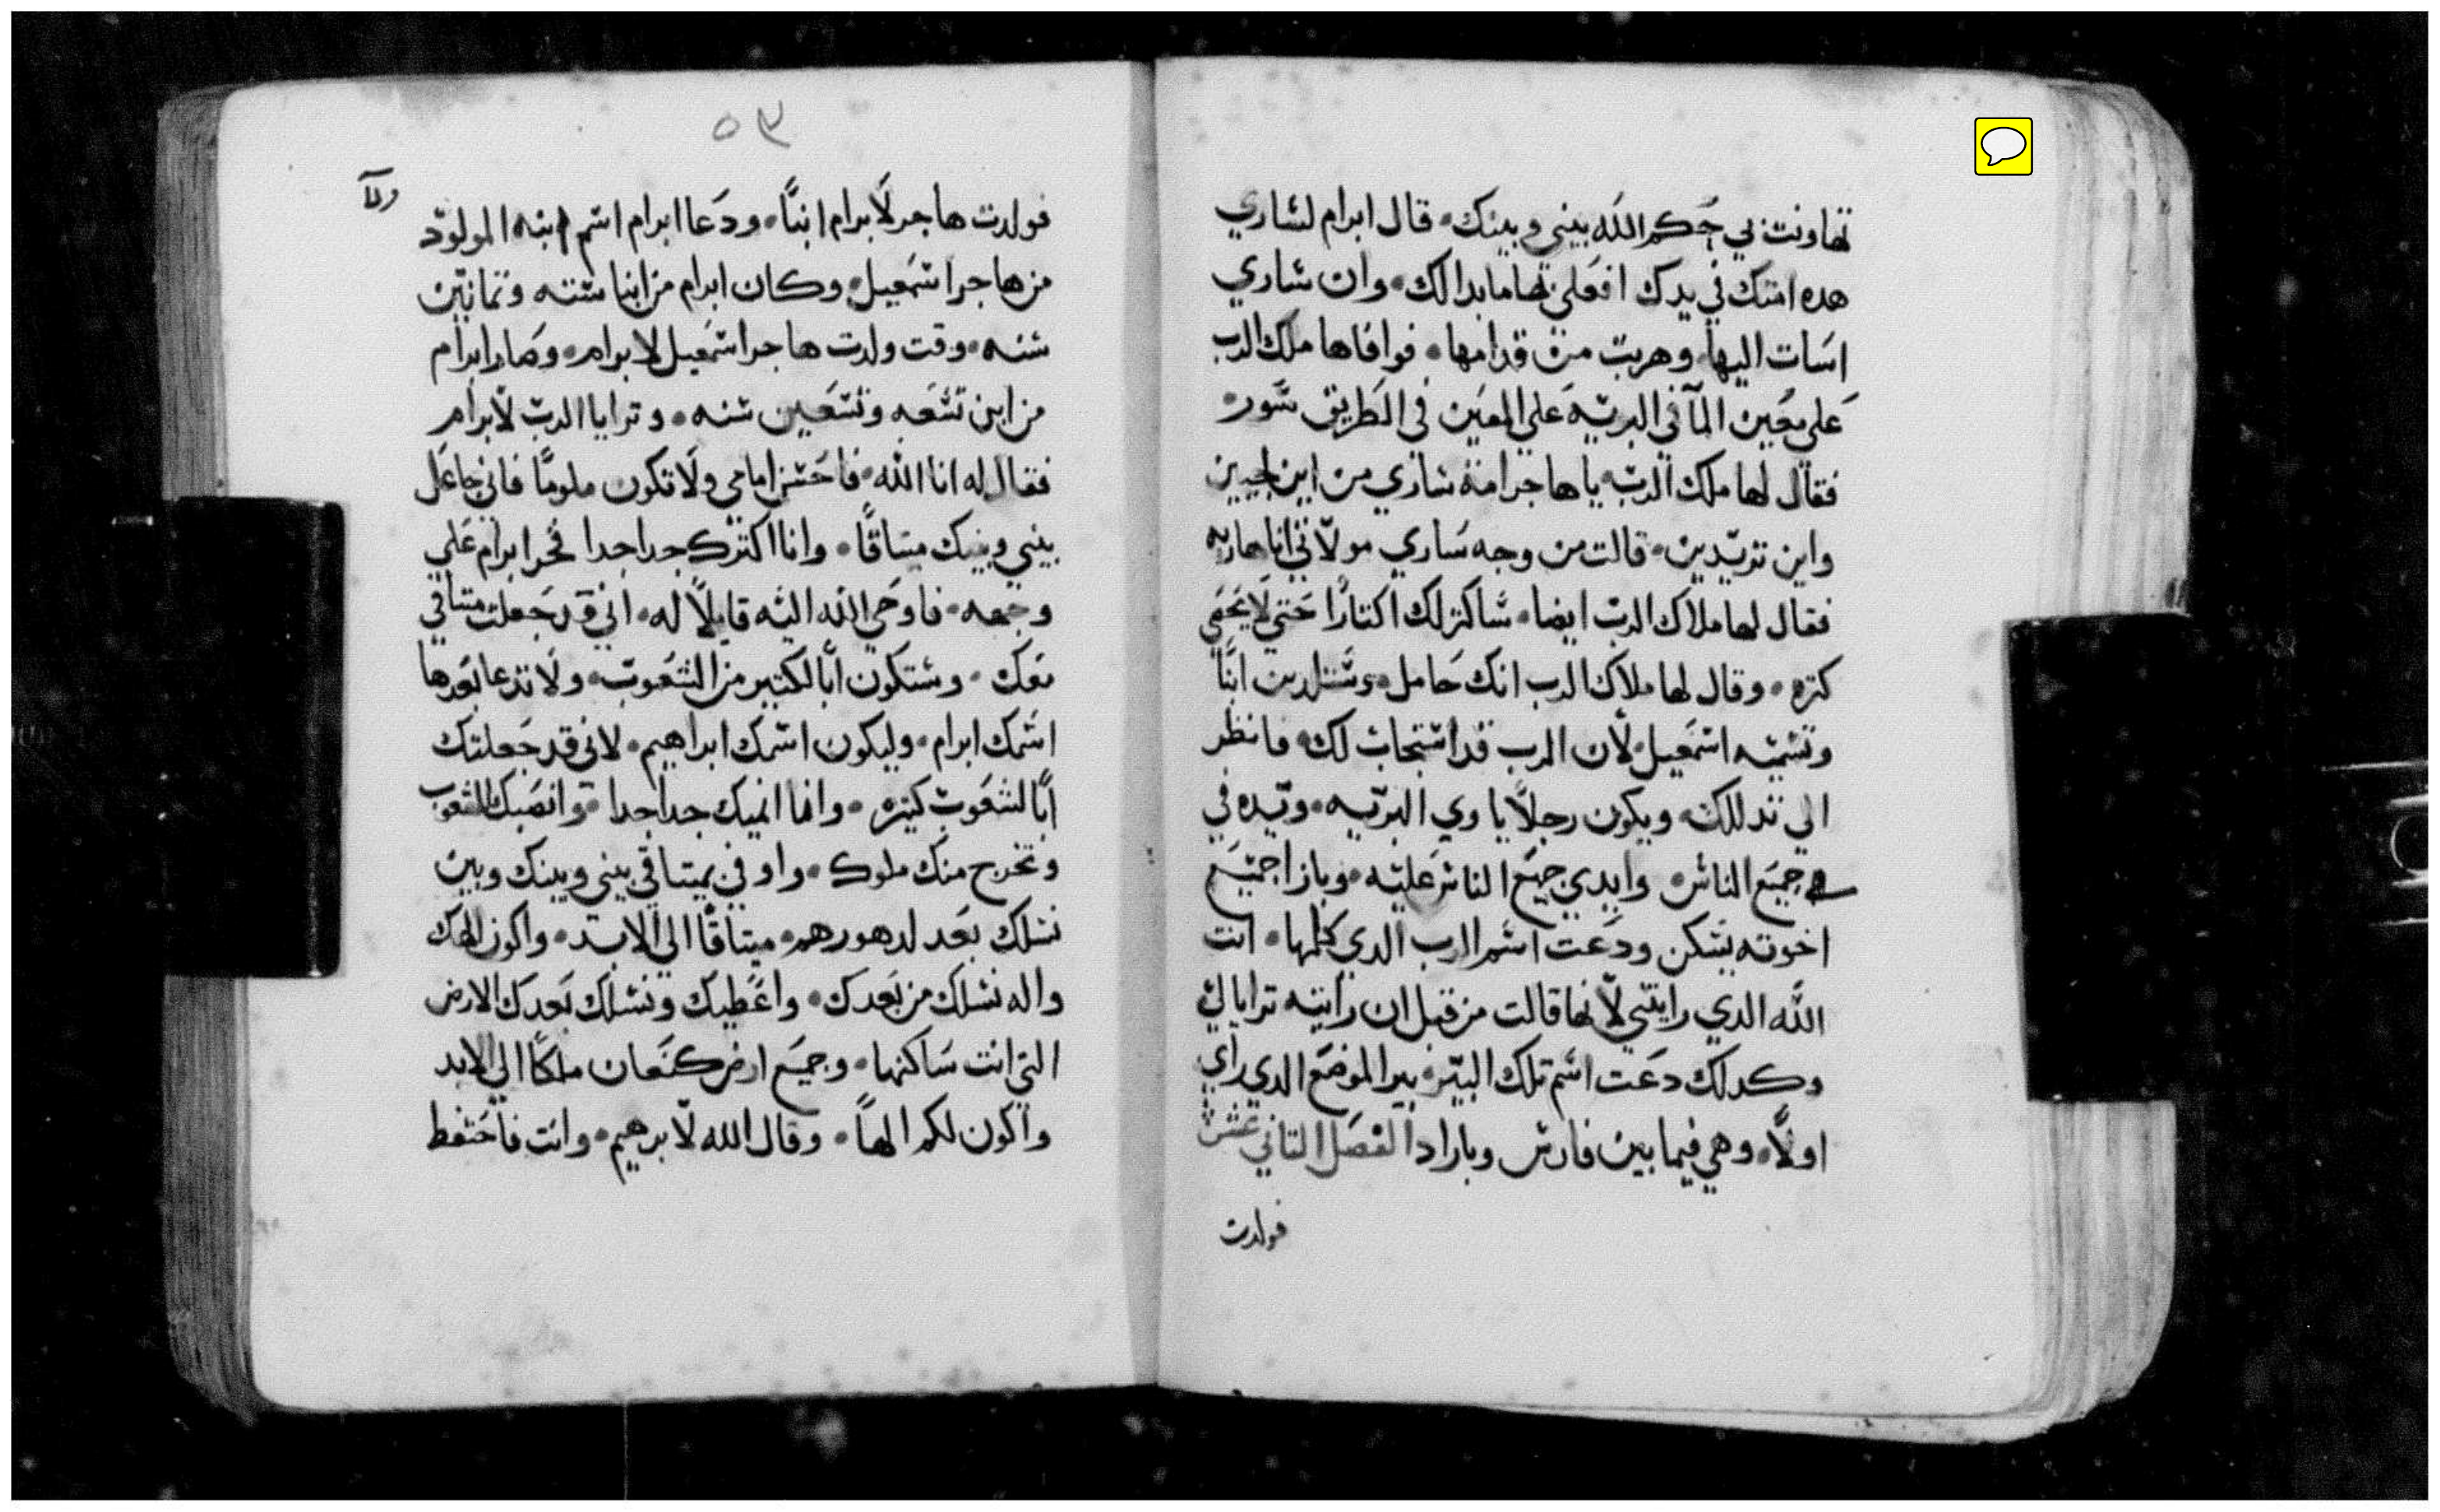 تهاونت بي حكم الله بيني وبينك۰ قال ابرام لساري
هده امتك في يدك افعلي بها ما بدا لك۰ وان ساري
اسات اليها وهربت من قدامها۰ فوافاها ملك الرب
على معين المآ في البريه على المعين في الطريق سور
فقال لها ملك الرب يا هاجر امة ساري من اين اجيين
واين تريدين۰ قالت من وجه ساري مولاتي انا هاربه
فقال لها ملاك الرب ايضا۰ ساكتر لك اكتارًا حتي لا يحصي
كتره۰ وقال لها ملاك الرب انك حامل۰ وستلدين ابنًا
وتسميه اسمعيل لان الرب قد استجاب لك۰ فانظر
الي تدللك۰ ويكون رجلاً ياوي البريه۰ ويده في
جميع الناس۰ وايدي جميع الناس عليه۰ وبازا جميع
اخوته يسكن ودعت اسم الرب الدي كلمها۰ انت
الله الدي رايتني لانها قالت من قبل ان رايته ترايا لي
وكدلك دعت اسم تلك البير۰ بير الموضع الدي راي
اولاً۰ وهي فيما بين فارس وباراد الفصل التاني عشر
فولدت
٥٣
فولدت هاجر لابرام ابنًا۰ ودعا ابرام اسم ابنه المولود
من هاجر اسمعيل۰ وكان ابرام من ابنا سته وتمانين
سنه۰ وقت ولدت هاجر اسمعيل لابرام۰ وصار ابرام
من ابن تسعه وتسعين سنه۰ وترايا الرب لابرام
فقال له انا الله۰ فاحسن امامي ولا تكون ملومًا فاني جاعل
بيني وبينك ميتاقًا۰ وانا اكترك جدا جدا فخر ابرام علي
وجهه۰ فاوحي الله اليه قايلاً له۰ اني قد جعلت ميتاقي
معك۰ وستكون ابًا لكتير من الشعوب۰ ولا تدعا بعدها
اسمك ابرام۰ وليكون اسمك ابراهيم۰ لاني قد جعلتك
ابًا لشعوب كتيره۰ وانا انميك جدا جدا۰ وانصبك للشعوب
وتخرج منك ملوك۰ واوفي بميتاقي بيني وبينك وبين
نسلك بعد لدهورهم۰ ميتاقًا الي الابد۰ واكون الهك
واله نسلك من بعدك۰ واعطيك ونسلك بعدك الارض
التي انت ساكنها۰ وجميع ارض كنعان ملكًا الي الابد
واكون لكم الهاً۰ وقال الله لابرهيم۰ وانت فاحفظ